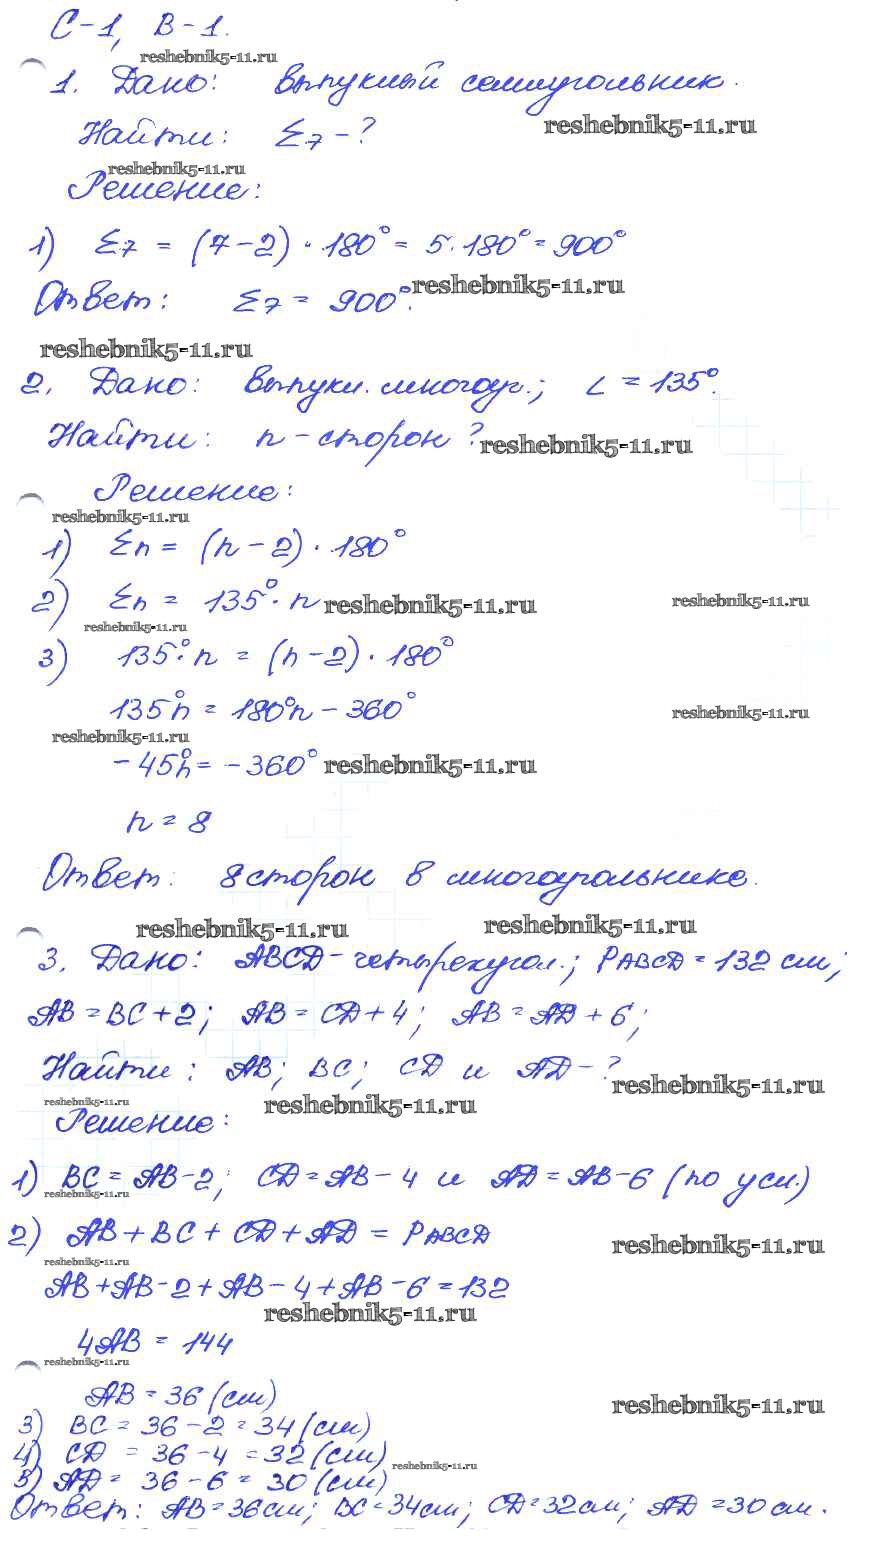 С-1, В-1.
reshebnik5-11.ru
1. Дано: выпуклый семиугольник.
Найти: Σ7 - ?
reshebnik5-11.ru
reshebnik5-11.ru
Решение:
1) Σ7 = (7-2)·180° = 5·180° = 900°
Ответ: Σ7 = 900°.
reshebnik5-11.ru
reshebnik5-11.ru
2. Дано: выпукл. многоуг.; ∠ = 135°.
Найти: n - сторон ?
reshebnik5-11.ru
Решение:
reshebnik5-11.ru
1) Σn = (n-2)·180°
2) Σn = 135°·n
reshebnik5-11.ru
reshebnik5-11.ru
reshebnik5-11.ru
3) 135°·n = (n-2)·180°
135°n = 180°n - 360°
reshebnik5-11.ru
reshebnik5-11.ru
-45°n = -360°
reshebnik5-11.ru
n = 8
Ответ: 8 сторон в многоугольнике.
reshebnik5-11.ru
reshebnik5-11.ru
3. Дано: ABCD - четырехугол.; PABCD = 132 см;
AB = BC + 2; AB = CD + 4; AB = AD + 6;
Найти: AB; BC; CD и AD - ?
reshebnik5-11.ru
reshebnik5-11.ru
reshebnik5-11.ru
Решение:
1) BC = AB - 2; CD = AB - 4 и AD = AB - 6 (по усл.)
reshebnik5-11.ru
2) AB + BC + CD + AD = PABCD
reshebnik5-11.ru
reshebnik5-11.ru
AB + AB - 2 + AB - 4 + AB - 6 = 132
reshebnik5-11.ru
4AB = 144
reshebnik5-11.ru
AB = 36 (см)
reshebnik5-11.ru
3) BC = 36 - 2 = 34 (см)
4) CD = 36 - 4 = 32 (см)
reshebnik5-11.ru
5) AD = 36 - 6 = 30 (см)
Ответ: AB = 36 см; BC = 34 см; CD = 32 см; AD = 30 см.